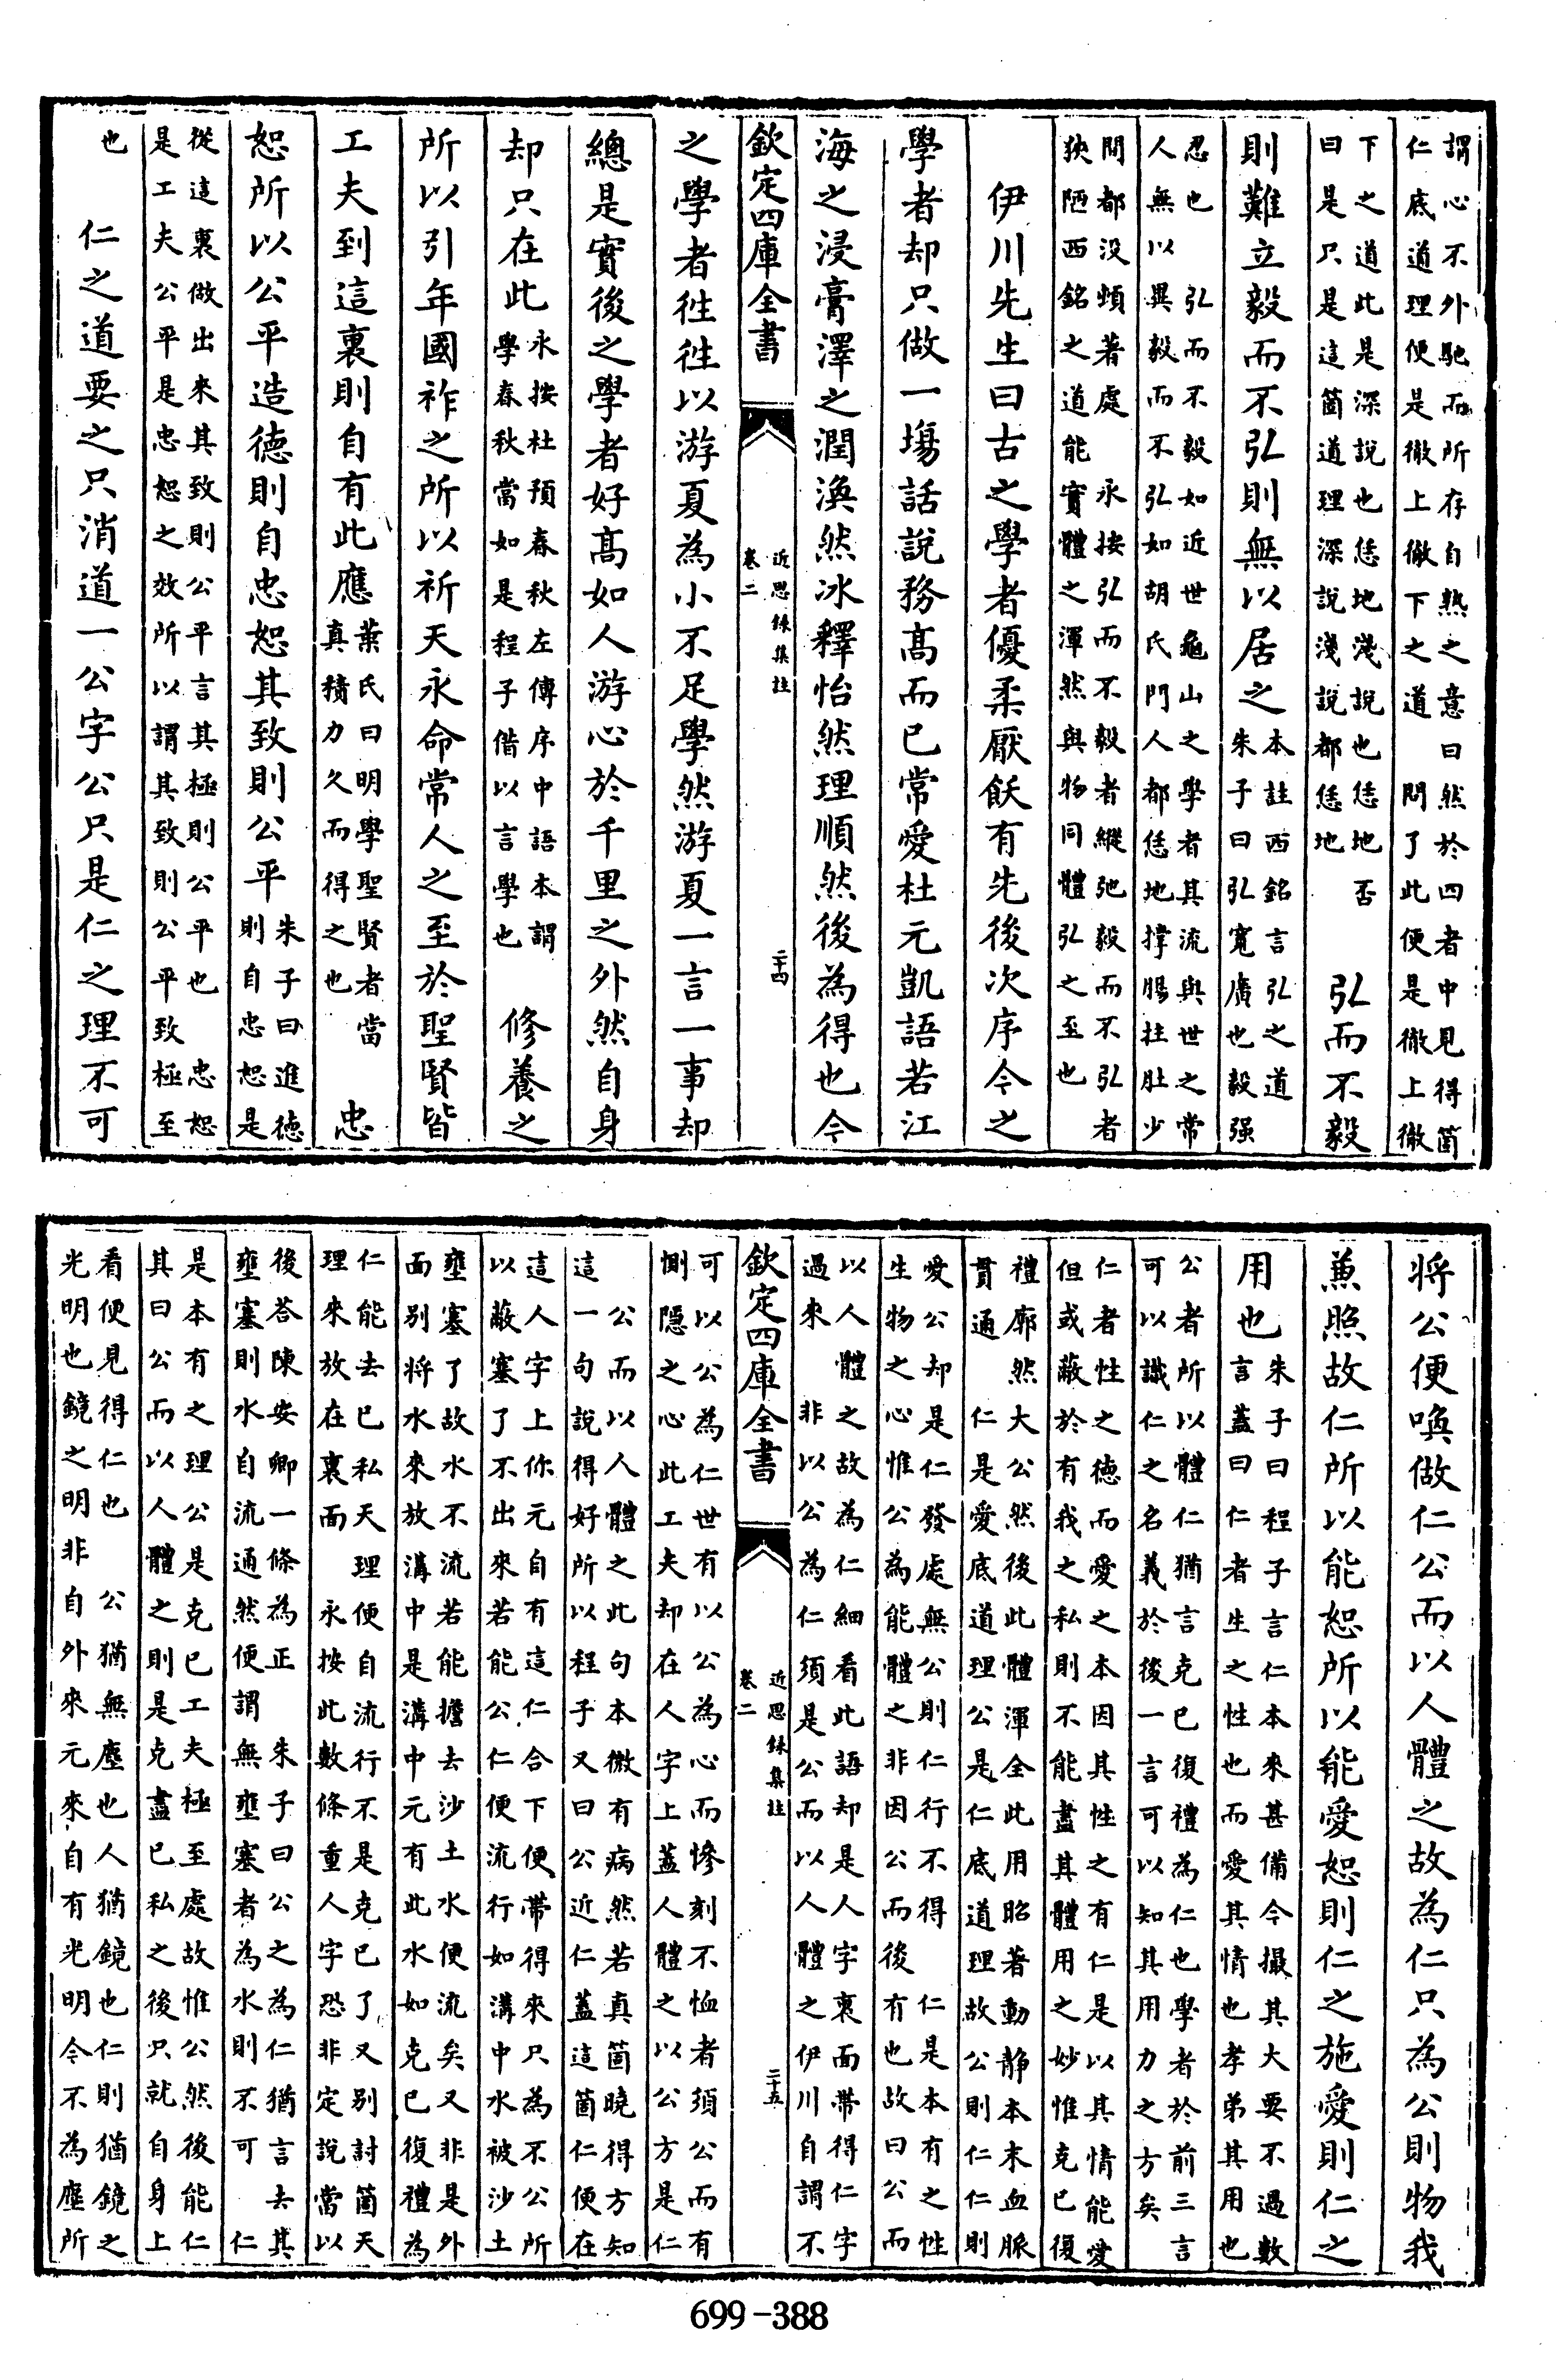 謂心不外馳而所存自熟之意曰然於四者中見得箇
仁底道理便是徹上徹下之道　問了此便是徹上徹
下之道此是深說也恁地淺說也恁地否
曰是只是這箇道理深說淺說都恁地
弘而不毅
則難立毅而不弘則無以居之
本註西銘言弘之道
朱子曰弘寛廣也毅强
忍也　弘而不毅如近世龜山之學者其流與世之常
人無以異毅而不弘如胡氏門人都恁地撑腸拄肚少
間都没頓著處　永按弘而不毅者縱弛毅而不弘者
狹陋西銘之道能實體之渾然與物同體弘之至也
伊川先生曰古之學者優柔厭飫有先後次序今之
學者却只做一塲話說務髙而已常愛杜元凱語若江
海之浸膏澤之潤渙然冰釋怡然理順然後為得也今
欽定四庫全書
近思録集註
卷二
二十四
之學者徃徃以游夏為小不足學然游夏一言一事却
總是實後之學者好髙如人游心於千里之外然自身
却只在此
永按杜預春秋左傳序中語本謂
學春秋當如是程子借以言學也
修養之
所以引年國祚之所以祈天永命常人之至於聖賢皆
工夫到這裏則自有此應
葉氏曰明學聖賢者當
真積力久而得之也
忠
恕所以公平造德則自忠恕其致則公平
朱子曰進德
則自忠恕是
從這裏做出來其致則公平言其極則公平也　忠恕
是工夫公平是忠恕之效所以謂其致則公平致極至
也
仁之道要之只消道一公字公只是仁之理不可
將公便喚做仁公而以人體之故為仁只為公則物我
兼照故仁所以能恕所以能愛恕則仁之施愛則仁之
用也
朱子曰程子言仁本末甚備今撮其大要不過數
言葢曰仁者生之性也而愛其情也孝弟其用也
公者所以體仁猶言克已復禮為仁也學者於前三言
可以識仁之名義於後一言可以知其用力之方矣
仁者性之德而愛之本因其性之有仁是以其情能愛
但或蔽於有我之私則不能盡其體用之妙惟克已復
禮廓然大公然後此體渾全此用昭著動静本末血脈
貫通　仁是愛底道理公是仁底道理故公則仁仁則
愛公却是仁發處無公則仁行不得　仁是本有之性
生物之心惟公為能體之非因公而後有也故曰公而
以人體之故為仁細看此語却是人字裏面帶得仁字
過來　非以公為仁須是公而以人體之伊川自謂不
欽定四庫全書
近思録集註
卷二
二十五
可以公為仁世有以公為心而慘刻不恤者須公而有
惻隠之心此工夫却在人字上葢人體之以公方是仁
公而以人體之此句本微有病然若真箇曉得方知
這一句說得好所以程子又曰公近仁葢這箇仁便在
這人字上你元自有這仁合下便帶得來只為不公所
以蔽塞了不出來若能公仁便流行如溝中水被沙土
壅塞了故水不流若能擔去沙土水便流矣又非是外
面别將水來放溝中是溝中元有此水如克已復禮為
仁能去已私天理便自流行不是克已了又别討箇天
理來放在裏面　永按此數條重人字恐非定說當以
後答陳安卿一條為正　朱子曰公之為仁猶言去其
壅塞則水自流通然便謂無壅塞者為水則不可　仁
是本有之理公是克已工夫極至處故惟公然後能仁
其曰公而以人體之則是克盡已私之後只就自身上
看便見得仁也　公猶無塵也人猶鏡也仁則猶鏡之
光明也鏡之明非自外來元來自有光明今不為塵所
699-388